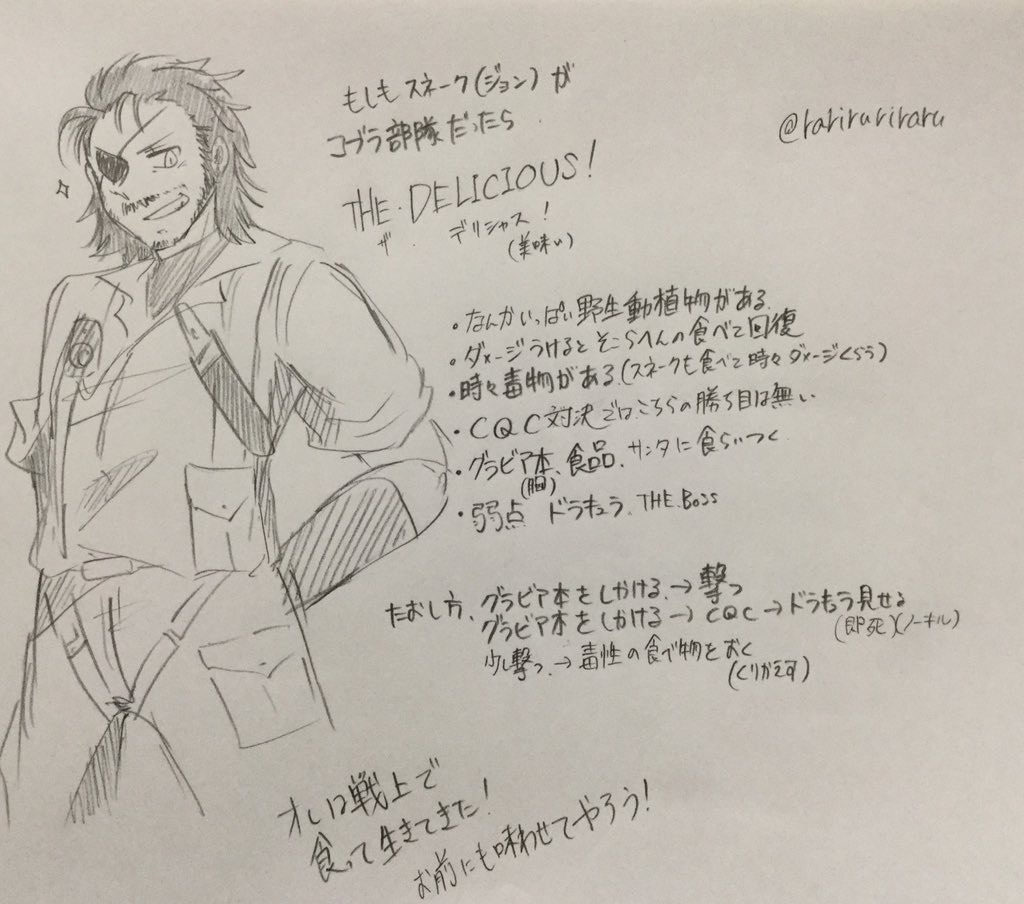 もしもスネーク(ジョン)が
コブラ部隊だったら
@rariruriraru
THE・DELICIOUS!
ザ・デリシャス!
(美味い)
・なんかいっぱい野生動植物がある
・ダメージうけるとそこらへんの食べて回復
・時々毒物がある(スネークも食べて時々ダメージくらう)
・CQC対決ではこちらの勝ち目は無い
・グラビア本、食品、サンタに食らいつく
(胸)
・弱点 ドラキュラ、THE.BOSS
たおし方、グラビア本をしかける→撃つ
グラビア本をしかける→CQC→ドラもう見せる
(即死)(ノーキル)
少し撃つ、→毒性の食べ物をおく
(くりかえす)
オレは戦上で
食って生きてきた!
お前にも味わせてやろう!